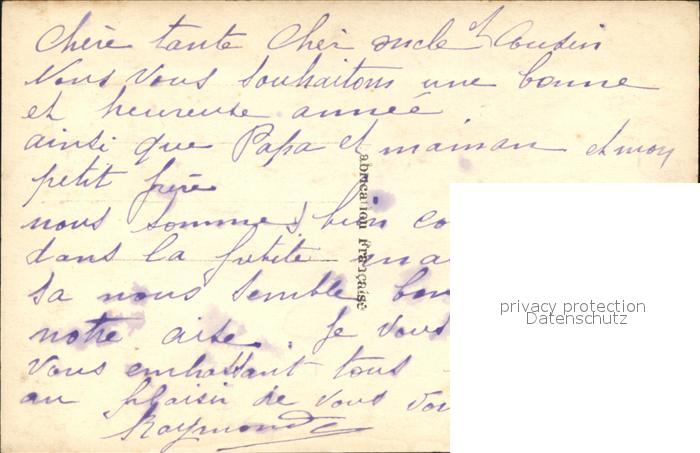 Chère tante Cher oncle et Cousin
Nous Vous Souhaitons une bonne
et heureuse année
ainsi que Papa et maman et mon
petit frère
nous sommes bien
dans la petite
sa nous semble
notre aise. Je vous
Vous embrassant tous
au plaisir de vous
Raymonde
abrication Française
privacy protection
Datenschutz